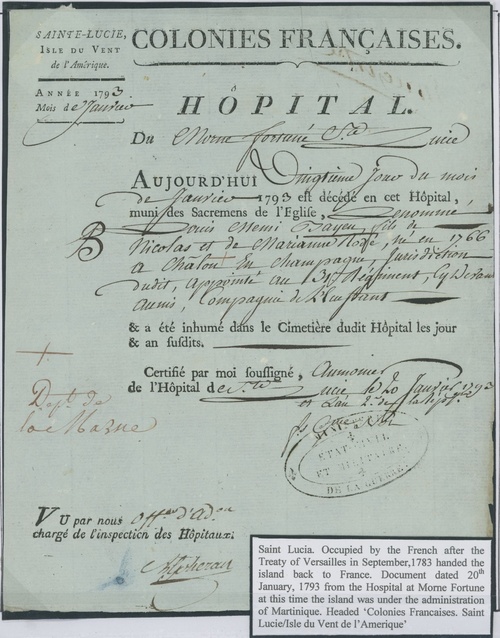 SAINTE-LUCIE,
ISLE DU VENT
de l'Amérique.
COLONIES FRANÇAISES.
ANNÉE 1793
Mois de Janvier
HÔPITAL.
Du Morne fortuné Ste. Lucie
AUJOURD'HUI Vingtième jour du mois
de Janvier 1793 est décédé en cet Hôpital,
muni des Sacremens de l'Eglise, Denommé
Louis Remi fils de
Nicolas et de Marianne né en 1766
a Châlon En champagne, Jurisdiction
dudit, appointé au 31e Régiment, cy devant
aunis, Compagnie de
& a été inhumé dans le Cimetière dudit Hôpital les jour
& an susdits.
Certifié par moi soussigné, Aumonier
de l'Hôpital de Ste Lucie le 20 Janvier 1793
et L'an 2e de la
Dept. de
la Marne
ETAT CIVIL
ET MILITAIRE
DE LA GUERRE
VU par nous off.er d'Ad.on
chargé de l'inspection des Hôpitaux.
Saint Lucia. Occupied by the French after the
Treaty of Versailles in September,1783 handed the
island back to France. Document dated 20th
January, 1793 from the Hospital at Morne Fortune
at this time the island was under the administration
of Martinique. Headed 'Colonies Francaises. Saint
Lucie/Isle du Vent de l'Amerique'